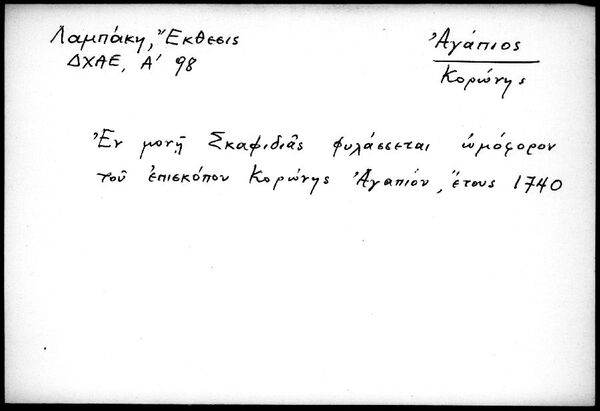 Λαμπάκη, Ἔκθεσις
ΔΧΑΕ, Α' 98
Ἀγάπιος
Κορώνης
Ἐν μονῇ Σκαφιδιᾶς φυλάσσεται ὠμόφορον
τοῦ ἐπισκόπου Κορώνης Ἀγαπίου, ἔτους 1740